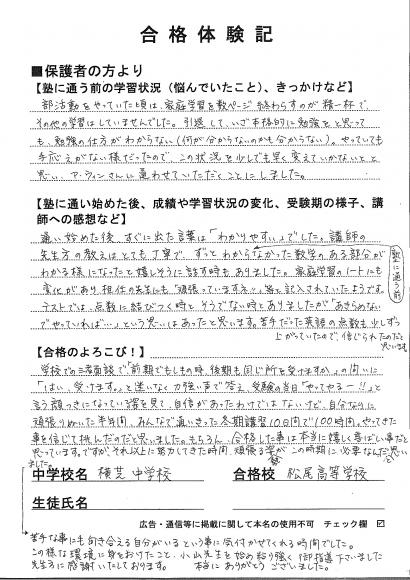 合格体験記
■保護者の方より
【塾に通う前の学習状況（悩んでいたこと）、きっかけなど】
部活動をやっていた頃は、家庭学習を数ページ終わらすのが精一杯で、
その他の学習はしていませんでした。引退して、いざ本格的に勉強をと思って
も、勉強の仕方がわからない（何が分からないのかも分からない）。やっていても
手応えがない様だったので、この状況を少しでも早く変えていかないとと
思い、ア・ウィンさんに通わせていただくことにしました。
【塾に通い始めた後、成績や学習状況の変化、受験期の様子、講
師への感想など】
通い始めた後、すぐに出た言葉は「わかりやすい」でした。講師の
先生方の教えはとても丁寧で、ずっとわからなかった数学のある部分が
塾に通う前
わかる様になったと嬉しそうに話す時もありました。家庭学習のノートにも
変化があり、担任の先生にも「頑張っていますネ…」等と記入されていたようです。
テストでは、点数に結びつく時とそうでない時とありましたが「あきらめない
でやっていれば…」という思いはあったと思います。苦手だった英語の点数も少しずつ
上がっていたので、信じられたのだと思います。
【合格のよろこび！】
学校での三者面談で「前期でもしもの時、後期も同じ所を受けますか」の問いに
「はい、受けます。」と迷いなく力強い声で答え、受験の当日「やってやるー!!」と
言う顔つきになっている姿を見て、自信があったわけではないけど、自分なりに
頑張り始めた半年間、みんなで通いきった冬期講習10日間で100時間。やってきた
事を信じて挑んだのだと思いました。もちろん、合格した事は本当に嬉しく喜ばしい事だと
思っています。ですが、それ以上に努力してきた時間、頑張る姿がこの時期に必要なんだと思い
ました。
中学校名 横芝中学校
合格校 松尾高等学校
生徒氏名
広告・通信等に掲載に関して本名の使用不可 チェック欄 ☑
苦手な事にも向き合える自分がいるという事に気付かせてくれる時間でした。
この様な環境に身をおけたこと、小山先生を始め粘り強く御指導下さいました
先生方に感謝いたしております。 本当にありがとうございました。